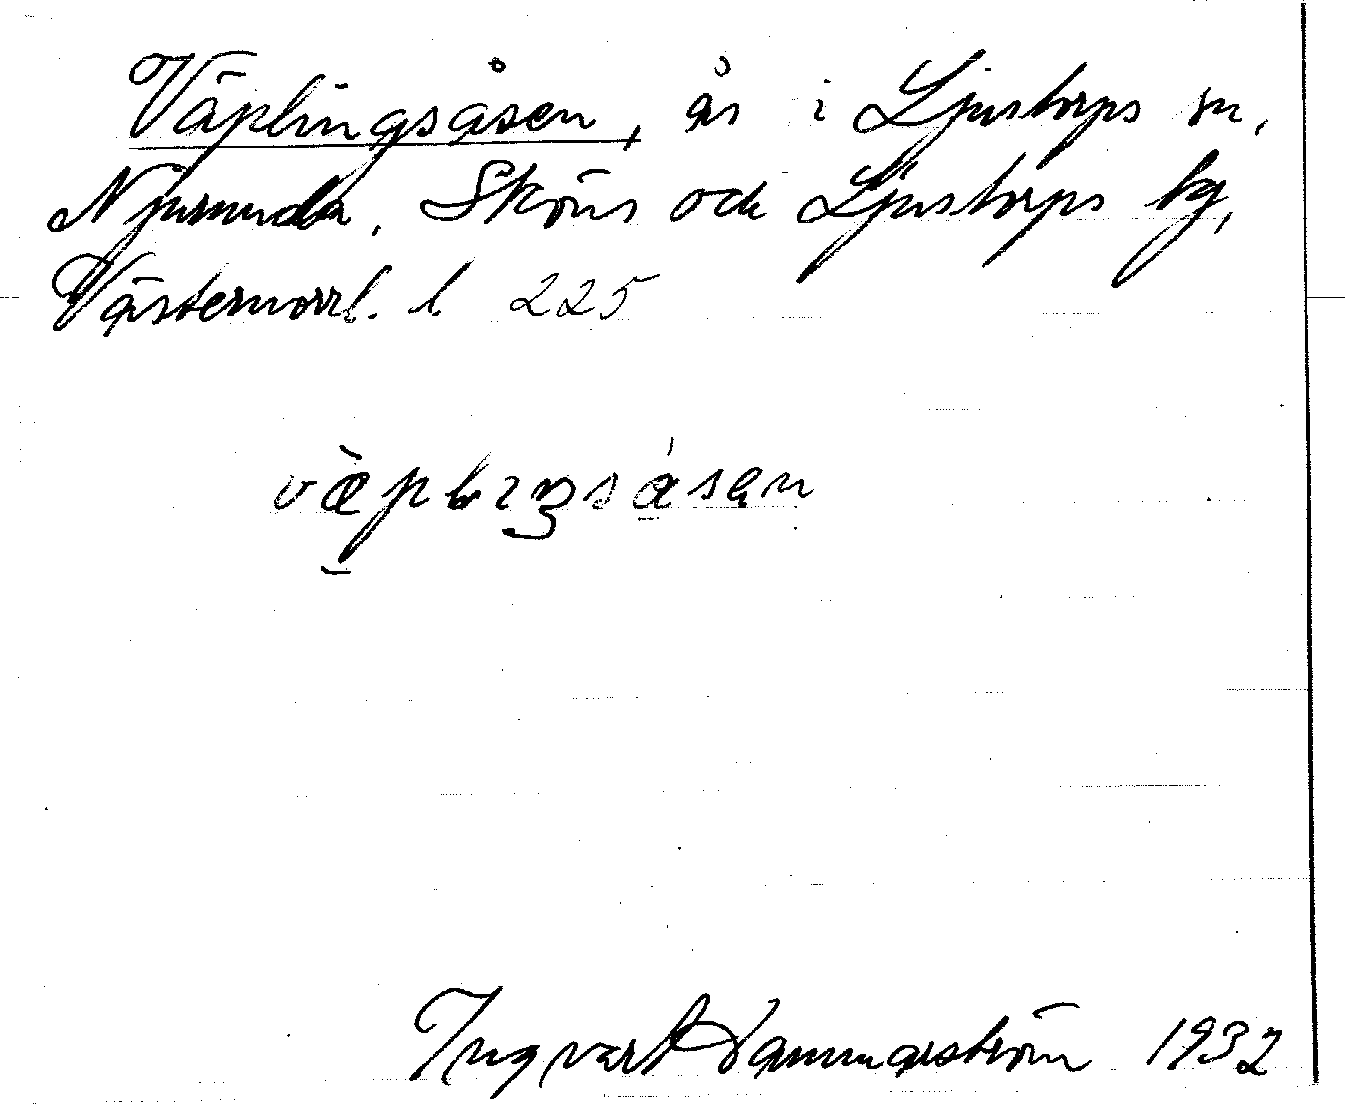 Väplingsåsen, ås i Ljustorps sn,
Njurunda, Sköns och Ljustorps tg,
Västernorrl. l 225
væplıŋsåsen
Ingvart Hammarström 1932